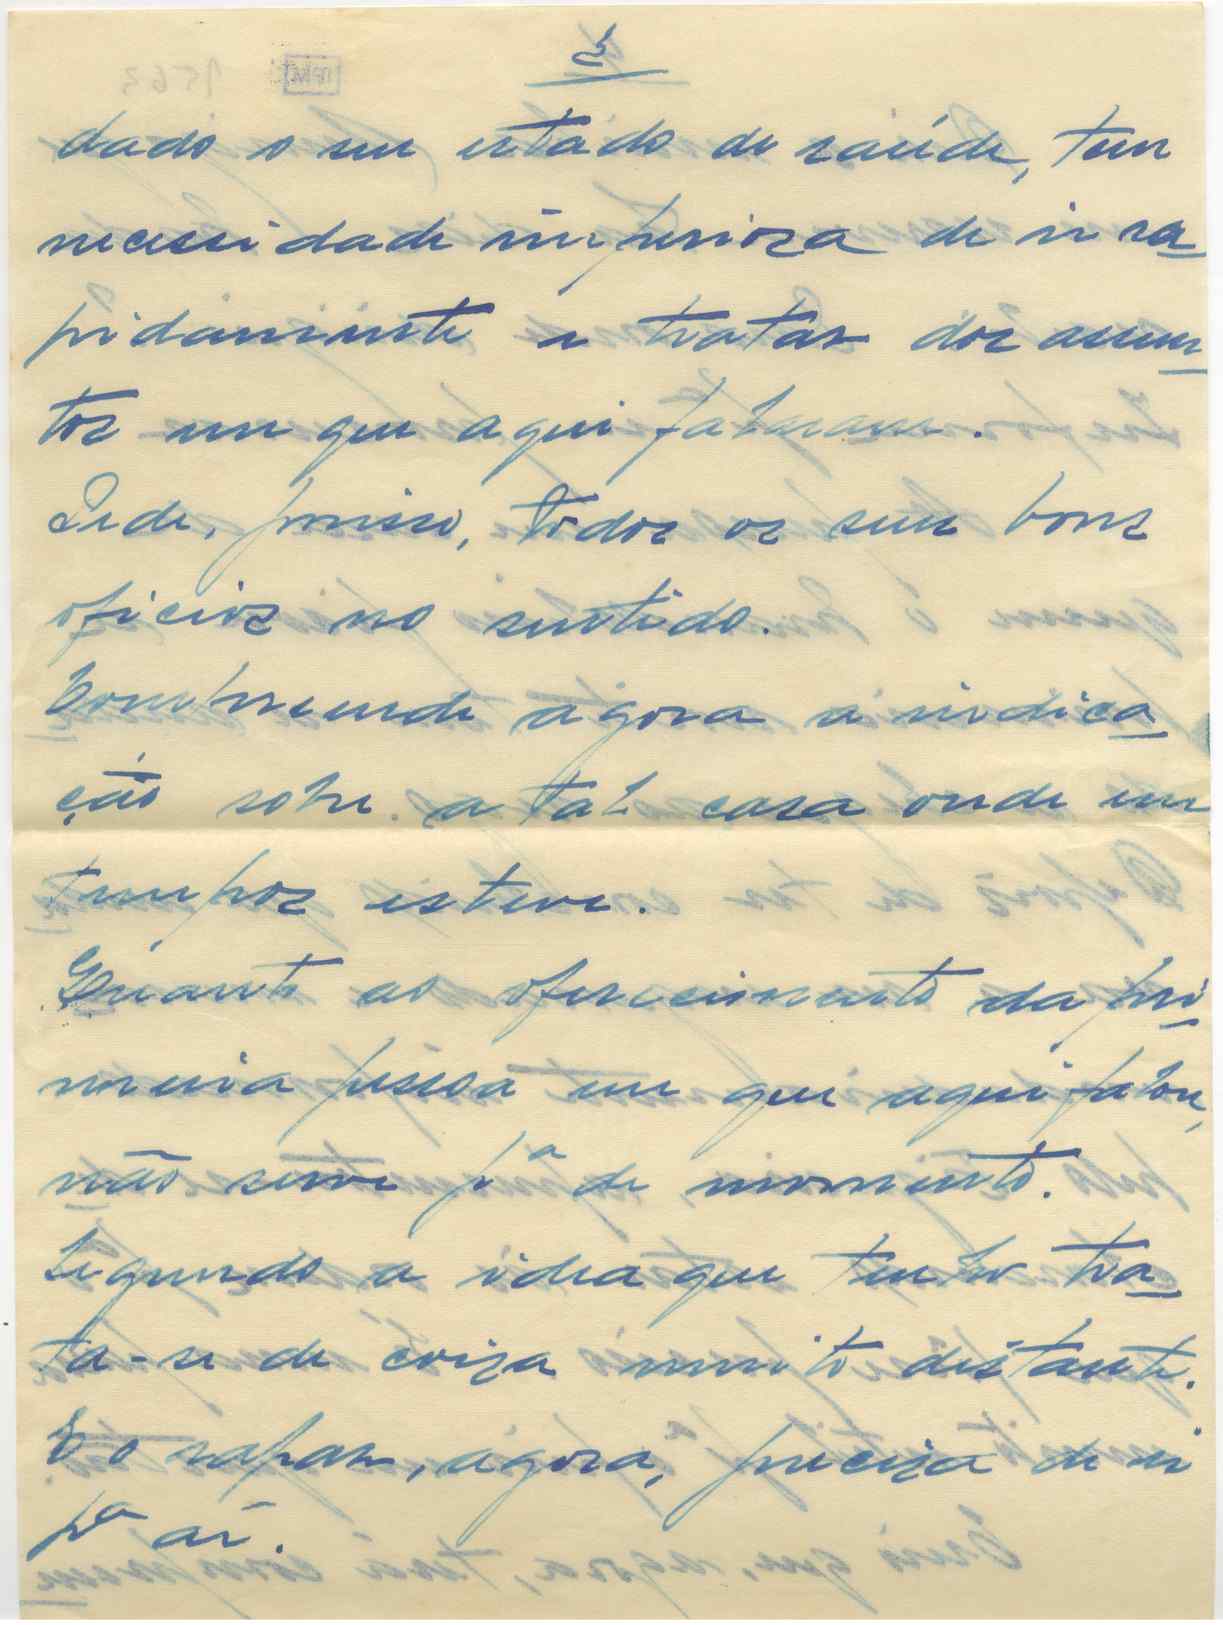 dado o seu estado de saúde, tem
necessidade imperioza de ir ra
pidamente a tratar doz assun
toz em que aqui falaram.
Pede, porisso, todoz oz seus bonz
oficioz no sentido.
Compreende agora a indica
ção sobre a tal casa onde em
tempoz esteve.
Quanto ao oferecimento da pri
meira pessoa em que aqui falou,
não serve pª de momento.
Segundo a idea que tenho tra
ta-se de coiza muito distante.
E o rapaz, agora, preciza de ir
pª aí.